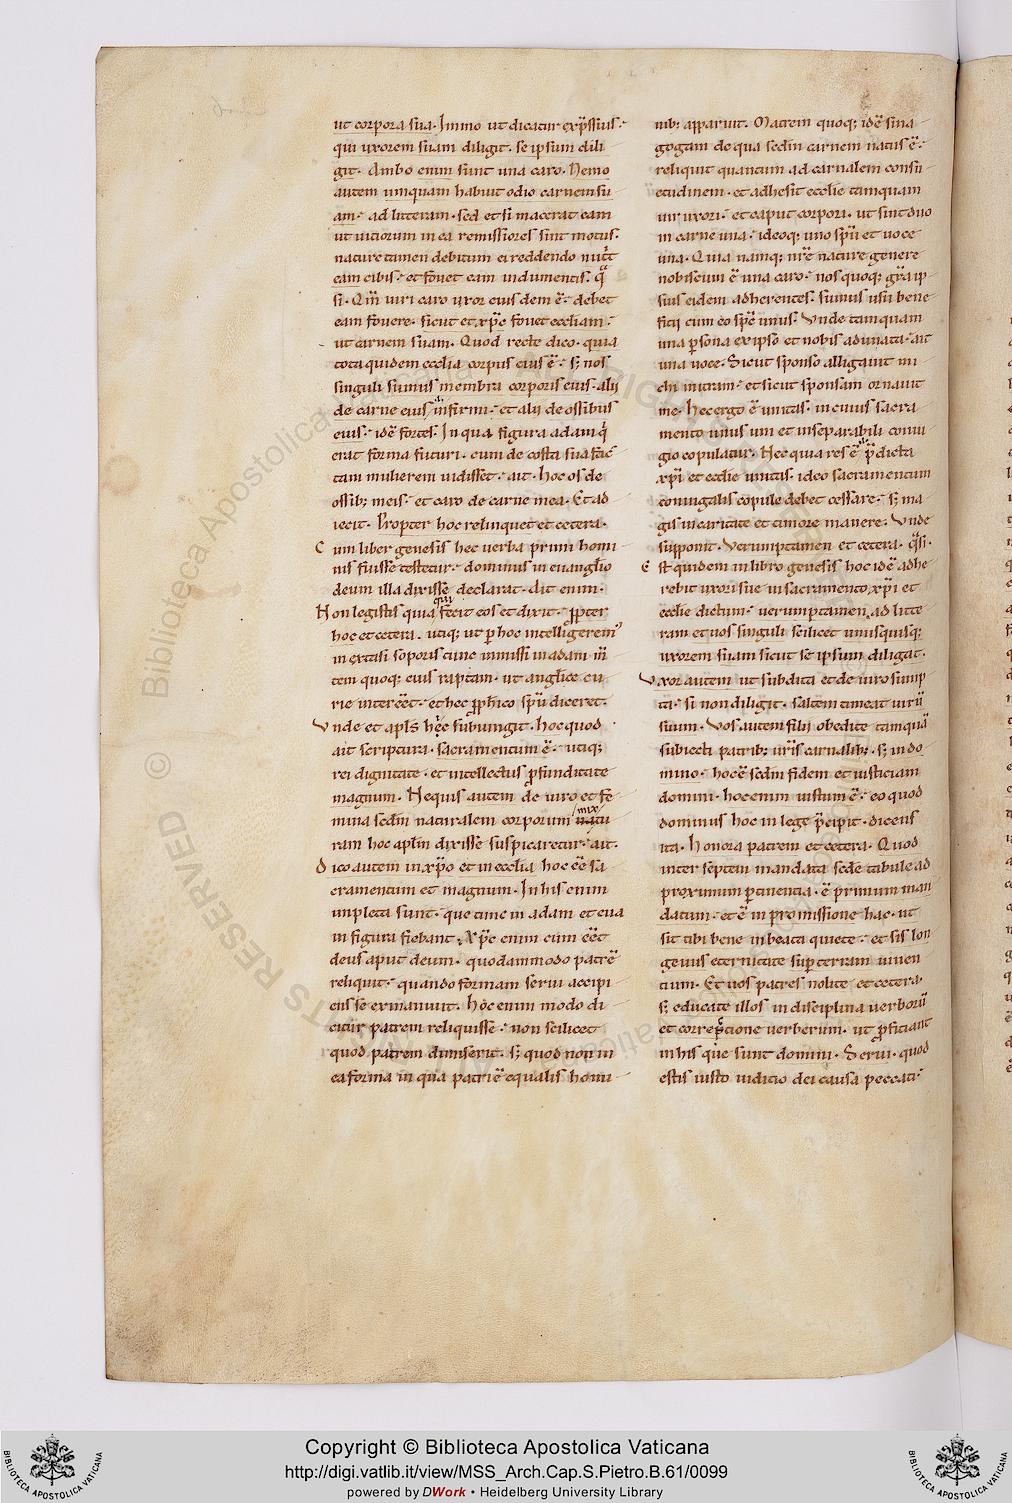 ut corpora sua. Immo ut dicatur exp̄ssius.
qui uxorem suam diligit. se ipsum dili
git. Ambo enim sunt una caro. Nemo
autem umquam habuit odio carnem su
am. ad litteram. sed et si macerat eam
ut uiciorum in ea remissiores sint motus.
nature tamen debitum ei reddendo
eam cibis. et fouet eam indumentis.
si. Qm̄ uiri caro uxor eius dem ē. debet
eam fouere. sicut et xp̄c fouet eccliam.
ut carnem suam. Quod recte dico. quia
tota quidem ecclia corpus eius ē. s; nos
singuli sumus membra corporis eius. alij
de carne eius infirmi. et alij de ossibus
eius. idē fortes. In qua figura adam q
erat forma futuri. cum de costa sua fac
tam mulierem uidisset. ait. Hoc os de
ossib; meis. et caro de carne mea. Et ad
iecit. Propter hoc relinquet et cetera.
Cum liber genesis hec uerba primi homi
nis fuisse testetur. dominus in euanglio
deum illa dixisse declarat. Ait enim.
Non legistis quia qui fecit eos et dixit. ꝓpter
hoc et cetera. utiq; ut p hoc intelligerem
in extasi soporis tunc inmissi in adam m̄
tem quoq; eius raptam. ut anglice cu
rie interēet. et hec ꝓphico spū diceret.
Vnde et apl̄s hec subiungit. hoc quod
ait scriptura. sacramentum ē. utiq;
rei dignitate. et intellectus ꝓfunditate
magnum. Nequis autem de uiro et fe
mina sedm naturalem corporum mix natu
ram hoc aplm dixisse suspicaretur. ait.
Dico autem in xp̄o et in ecclia hoc ēe sa
cramentum et magnum. In his enim
impleta sunt. que tunc in adam et eua
in figura fiebant. Xp̄c enim cum ēet
deus aput deum. quodammodo patrē
reliquit. quando formam serui accipi
ens se exinaniuit. Hoc enim modo di
citur patrem reliquisse. non scilicet
quod patrem dimiserit. s; quod non in
ea forma in qua patri ē equalis homi
nib; apparuit. Matrem quoq; idē sina
gogam de qua sedm carnem natus ē.
reliquit quantum ad carnalem consu
etudinem. et adhesit ecclie tamquam
uir uxori. et caput corpori. ut sint duo
in carne una. ideoq; uno spū et uoce
una. Quia namq; nr̄e nature genere
nobiscum ē una caro. nos quoq; gr̄a ip
sius eidem adherentes. sumus usu bene
ficij cum eo spc̄ unus. Vnde tamquam
una psona ex ipso et nobis adunata. ait
una uoce. Sicut sponso alligauit mi
chi mitram. et sicut sponsam ornauit
me. Hec ergo ē unitas. in cuius sacra
mento unus um et inseparabili coniu
gio copulatur. Hec quia res ē p̄dicta
xp̄i et ecclie unitas. ideo sacramentum
coniugalis copule debet cessare. s; ma
gis in caritate et timore manere. Vnde
supponit. Verumptamen et cetera. q̄si.
Est quidem in libro genesis hoc idē adhe
rebit uxori sue in sacramento xp̄i et
ecclie dictum. uerumptamen ad litte
ram et uos singuli scilicet unusquisq;
uxorem suam sicut se ipsum diligat.
Vxor autem ut subdita et de uiro sump
ta. si non diligit. saltem timeat uirū
suum. Vos autem filij obedite tamquā
subiecti patrib; ur̄is carnalib;. s; in do
mino. hoc ē sedm fidem et iusticiam
domini. hoc enim iustum ē. eo quod
dominus hoc in lege p̄cipit. dicens
ita. Honora patrem et cetera. Quod
inter septem mandata sede tabule ad
proximum ptinentia. ē primum man
datum. et ē in promissione hac. ut
sit tibi bene in beata quiete. et sis lon
geuus eternitate sup terram uiuen
tium. Et uos patres nolite et cetera.
s; educate illos in disciplina uerborū
et correpcione uerberum. ut ꝓficiant
in his que sunt domini. Serui. quod
estis iusto iuditio dei causa peccati.
Copyright © Biblioteca Apostolica Vaticana
http://digi.vatlib.it/view/MSS_Arch.Cap.S.Pietro.B.61/0099
powered by DWork • Heidelberg University Library
BIBLIOTECA APOSTOLICA VATICANA
BIBLIOTECA APOSTOLICA VATICANA